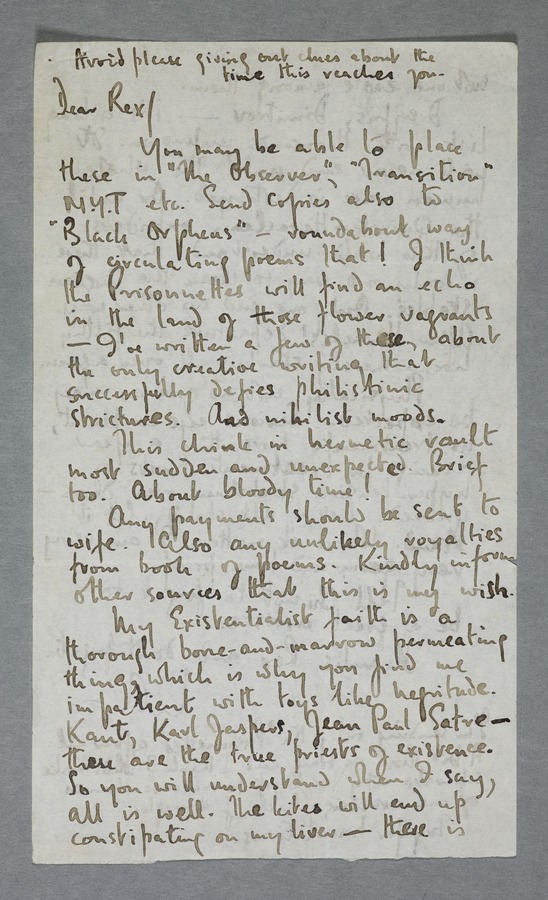 . Avoid please giving out clues about the
time this reaches you.
Dear Rex/
You may be able to place
these in "The Observer", "Transition"
N.Y.T etc. Send copies also to
"Black Orpheus" – roundabout way
of circulating poems that! I think
the Prisonnettes will find an echo
in the land of those flower vagrants
– I've written a few of these, about
the only creative writing that
successfully defies philistinic
strictures. And nihilist moods.
This chink in hermetic vault
most sudden and unexpected. Brief
too. About bloody time!
Any payments should be sent to
wife. Also any unlikely royalties
from book of poems. Kindly inform
other sources that this is my wish.
My Existentialist faith is a
thorough bone-and-marrow permeating
thing, which is why you find me
impatient with toys like negritude.
Kant, Karl Jaspers, Jean Paul Satre –
these are the true priests of existence.
So you will understand when I say,
all is well. The kites will end up
constipating on my liver – there is